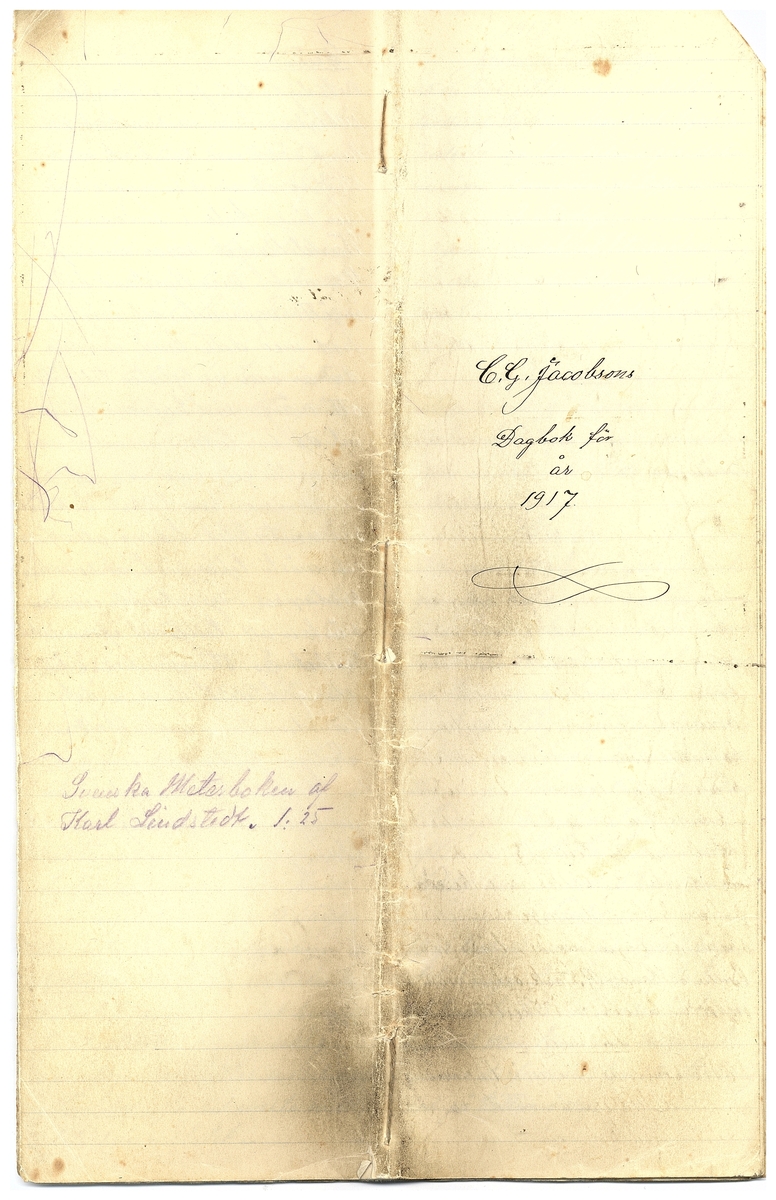 Svenska Meterboken af
Karl Lindstedt. 1:25
C. G. Jacobsons
Dagbok för
år
1917.